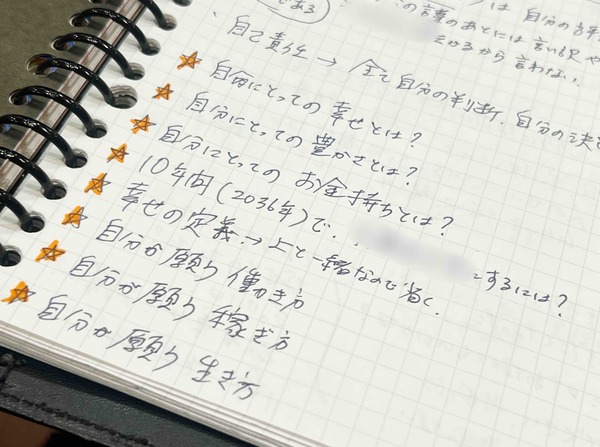 である
は 自分の
の言葉のあとには 言い訳や
るから 言わない。
自己責任 → 全て自分の判断、自分の決
自分にとっての 幸せとは？
自分にとっての 豊かさとは？
自分にとっての お金持ちとは？
10年間(2036年)で、 するには？
幸せの定義→上と一緒なので省く.
自分が願う 働き方
自分が願う 稼ぎ方
自分が願う 生き方